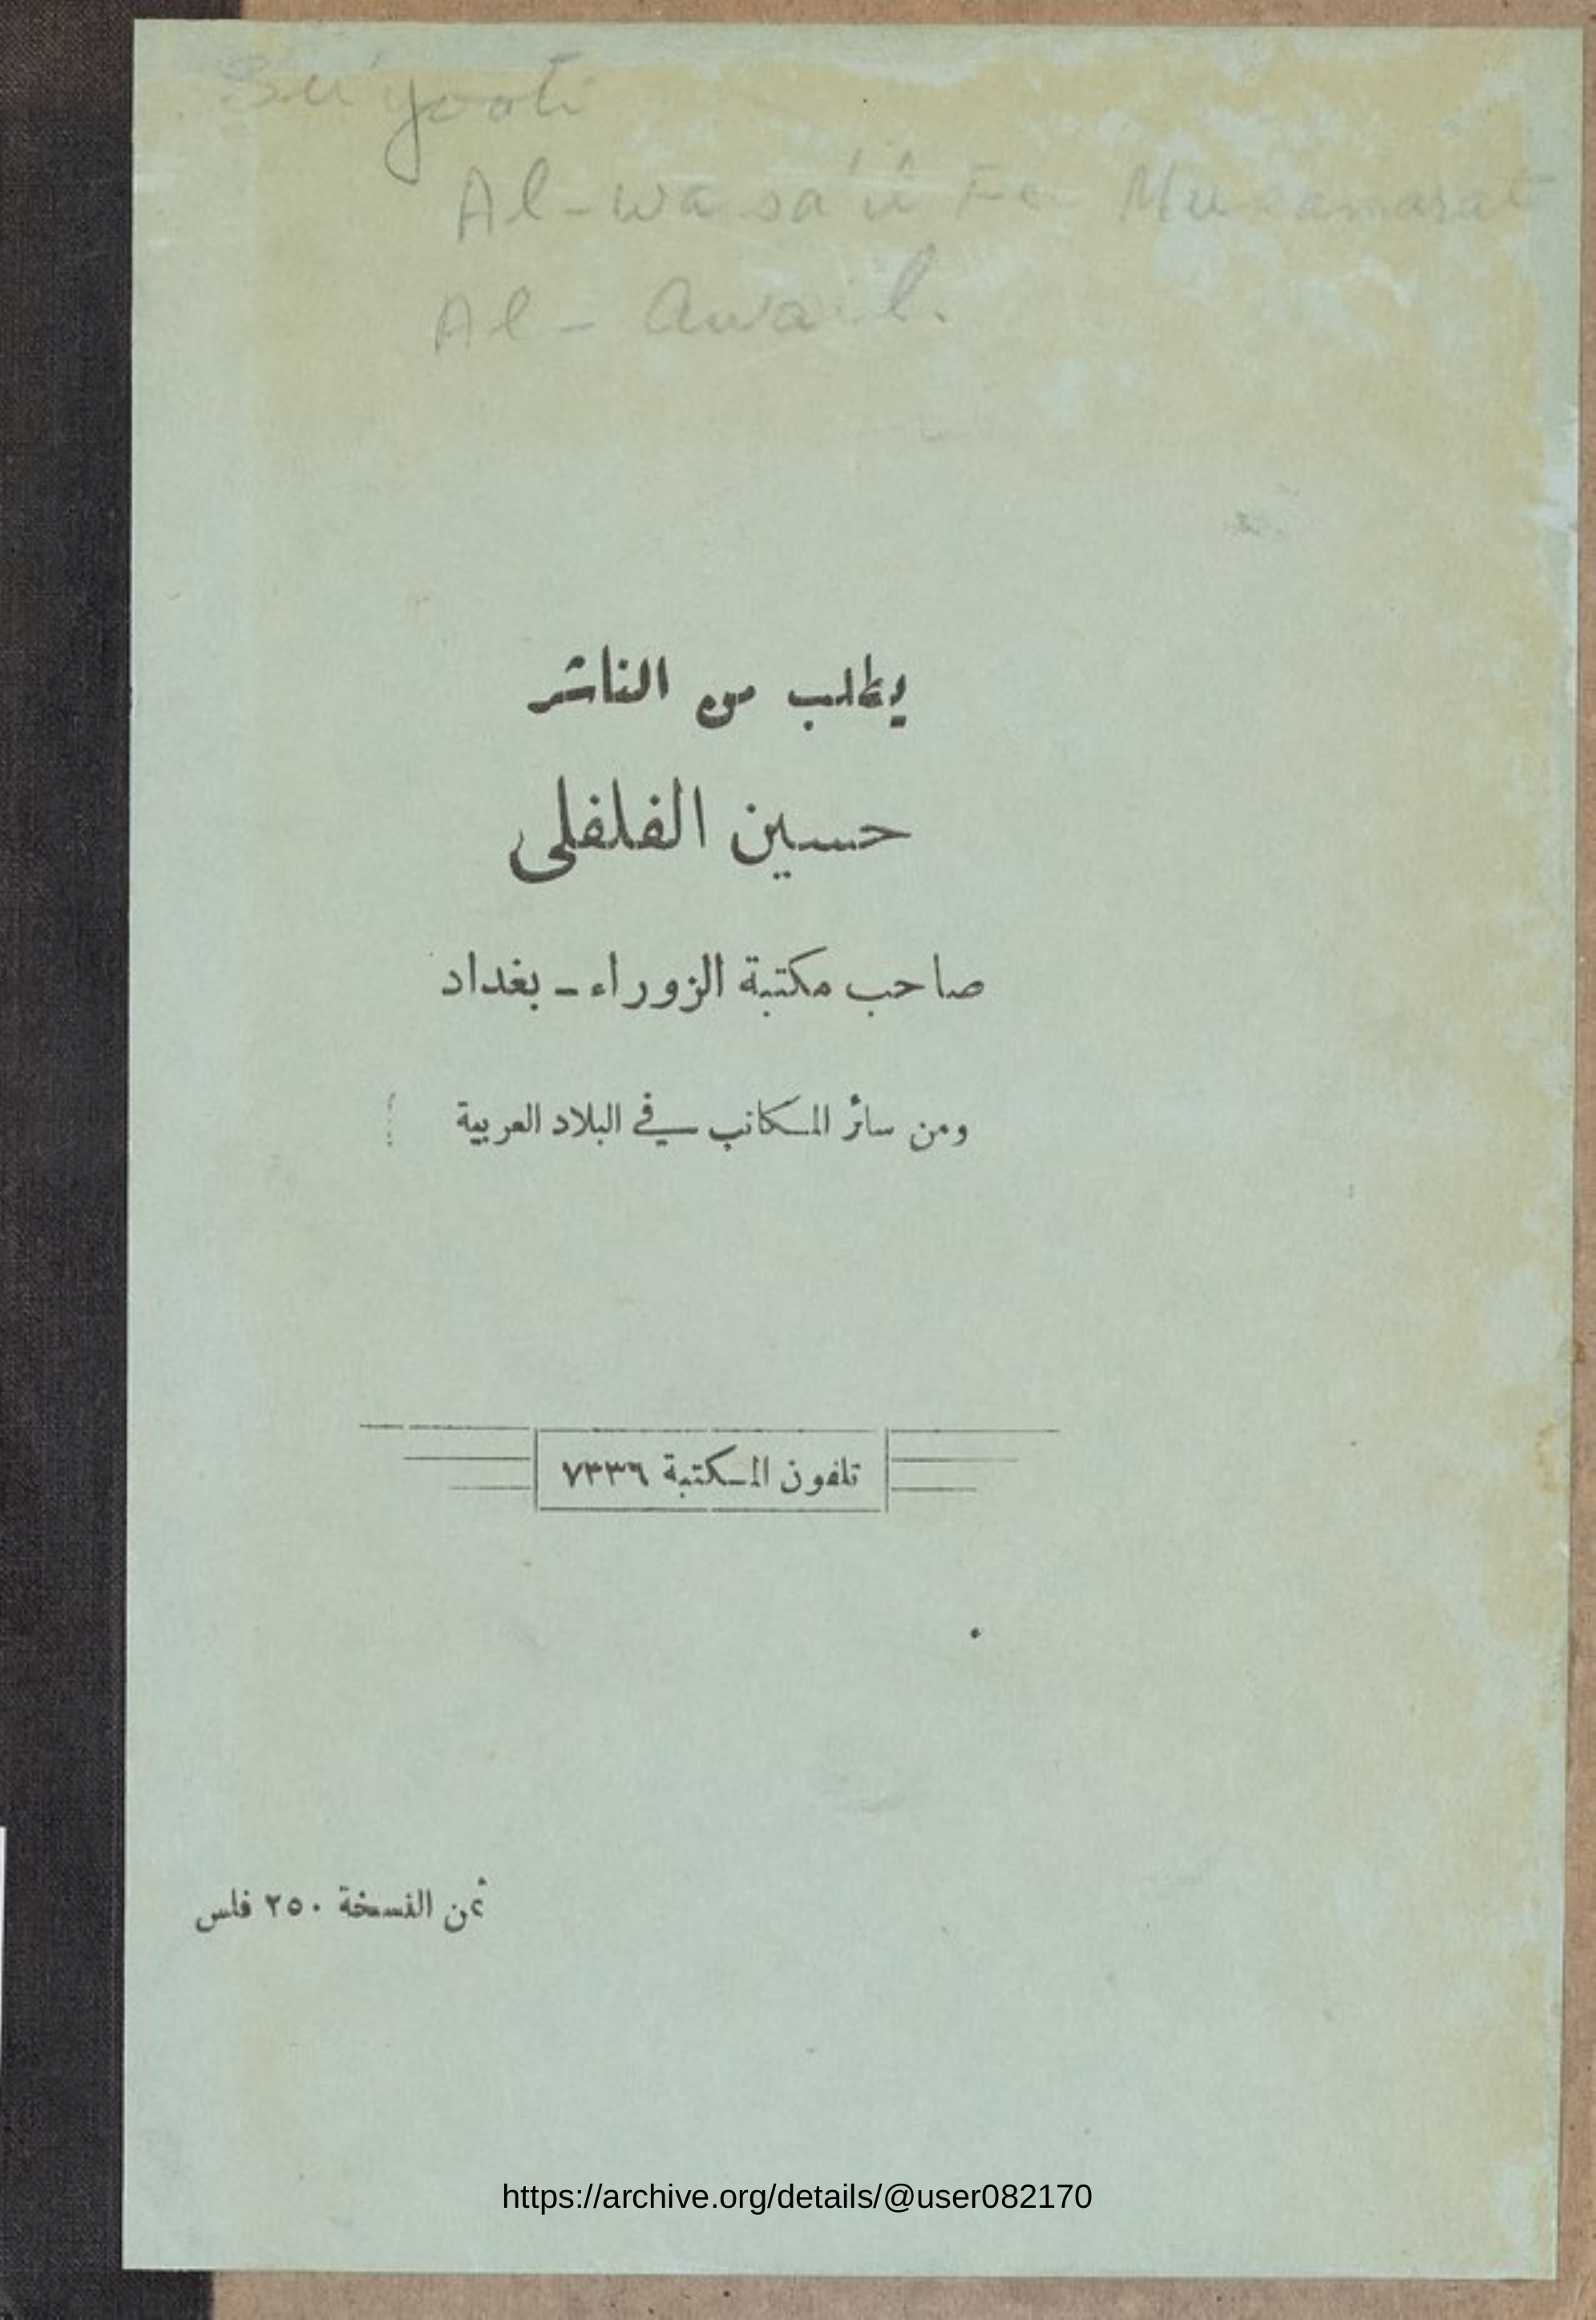 Su'yooti
Al-wasa'il Fe
Al-Awail.
يطلب من الناشر
حسين الفلفلى
صاحب مكتبة الزوراء - بغداد
ومن سائر المكاتب في البلاد العربية
تلفون المكتبة ٧٣٣٦
ثمن النسخة ٢٥٠ فلس
https://archive.org/details/@user082170